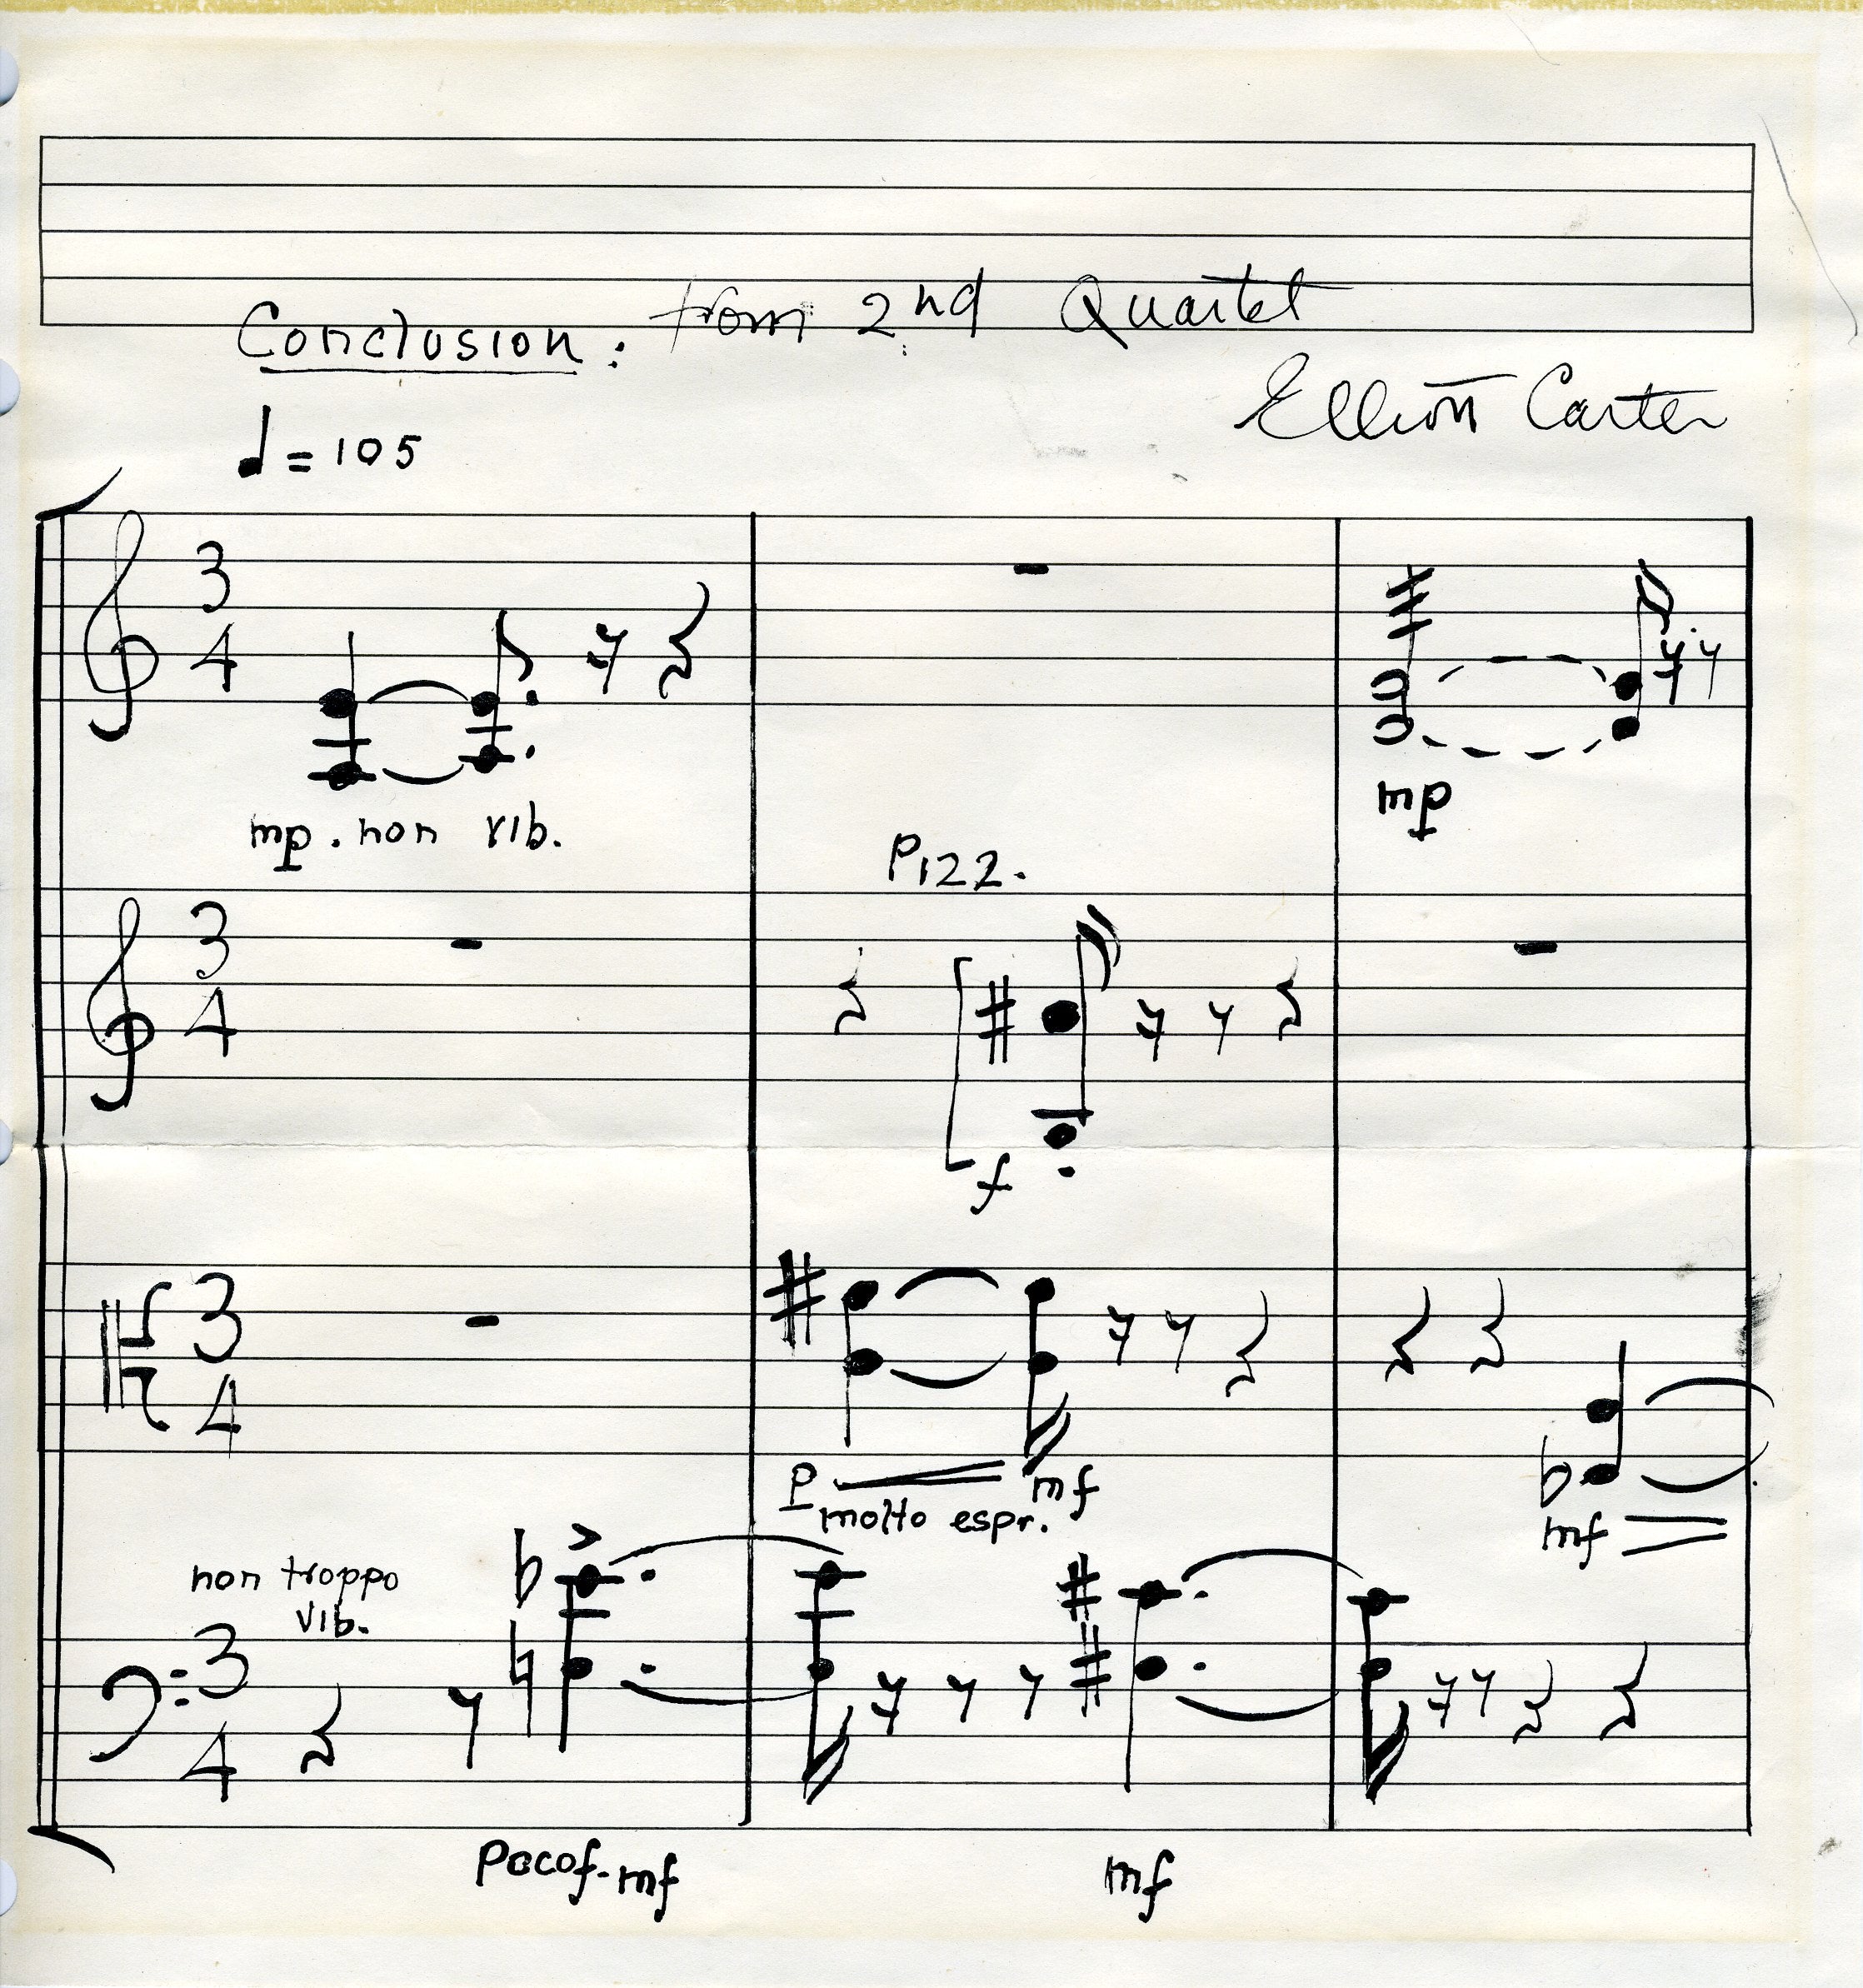 Conclusion: from 2nd Quartet
Elliott Carter
♩ = 105
3
4
mp. non vib.
mp
Pizz.
3
4
f
3
4
p mf
molto espr.
mf
non troppo
vib.
3
4
Poco f-mf
mf